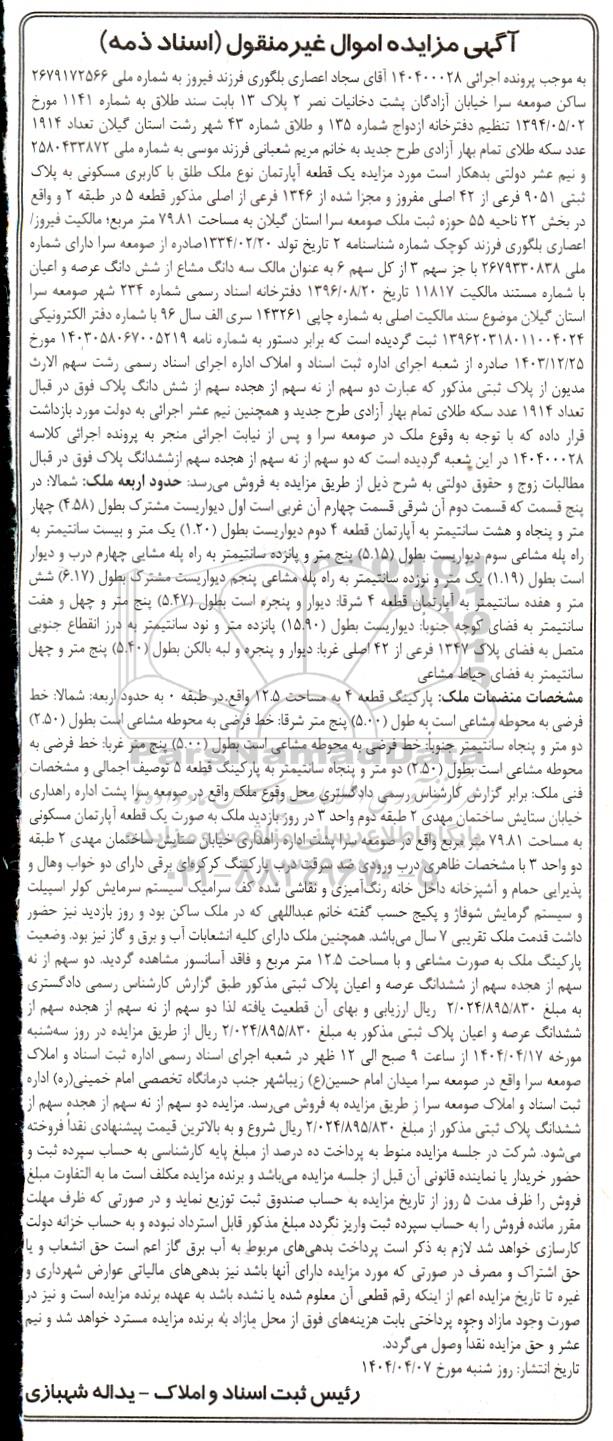 آگهی مزایده اموال غیرمنقول (اسناد ذمه)
به موجب پرونده اجرائی ۱۴۰۴۰۰۰۲۸ آقای سجاد اعصاری بلگوری فرزند فیروز به شماره ملی ۲۶۷۹۱۷۲۵۶۶
ساکن صومعه سرا خیابان آزادگان پشت دخانیات نصر ۲ پلاک ۱۳ بابت سند طلاق به شماره ۱۱۴۱ مورخ
۱۳۹۴/۰۵/۰۲ تنظیم دفترخانه ازدواج شماره ۱۳۵ و طلاق شماره ۴۳ شهر رشت استان گیلان تعداد ۱۹۱۴
عدد سکه طلای تمام بهار آزادی طرح جدید به خانم مریم شعبانی فرزند موسی به شماره ملی ۲۵۸۰۴۳۳۸۷۲
و نیم عشر دولتی بدهکار است مورد مزایده یک قطعه آپارتمان نوع ملک طلق با کاربری مسکونی به پلاک
ثبتی ۹۰۵۱ فرعی از ۴۲ اصلی مفروز و مجزا شده از ۱۳۴۶ فرعی از اصلی مذکور قطعه ۵ در طبقه ۲ و واقع
در بخش ۲۲ ناحیه ۵۵ حوزه ثبت ملک صومعه سرا استان گیلان به مساحت ۷۹.۸۱ متر مربع؛ مالکیت فیروز/
اعصاری بلگوری فرزند کوچک شماره شناسنامه ۲ تاریخ تولد ۱۳۳۴/۰۲/۲۰صادره از صومعه سرا دارای شماره
ملی ۲۶۷۹۳۳۰۸۳۸ با جز سهم ۳ از کل سهم ۶ به عنوان مالک سه دانگ مشاع از شش دانگ عرصه و اعیان
با شماره مستند مالکیت ۱۱۸۱۷ تاریخ ۱۳۹۶/۰۸/۲۰ دفترخانه اسناد رسمی شماره ۲۳۴ شهر صومعه سرا
استان گیلان موضوع سند مالکیت اصلی به شماره چاپی ۱۴۳۲۶۱ سری الف سال ۹۶ با شماره دفتر الکترونیکی
۱۳۹۶۲۰۳۱۸۰۱۱۰۰۴۰۲۴ ثبت گردیده است که برابر دستور به شماره نامه ۱۴۰۳۰۵۸۰۶۷۰۰۵۲۱۹ مورخ
۱۴۰۳/۱۲/۲۵ صادره از شعبه اجرای اداره ثبت اسناد و املاک اداره اجرای اسناد رسمی رشت سهم الارث
مدیون از پلاک ثبتی مذکور که عبارت دو سهم از نه سهم از هجده سهم از شش دانگ پلاک فوق در قبال
تعداد ۱۹۱۴ عدد سکه طلای تمام بهار آزادی طرح جدید و همچنین نیم عشر اجرائی به دولت مورد بازداشت
قرار داده که با توجه به وقوع ملک در صومعه سرا و پس از نیابت اجرائی منجر به پرونده اجرائی کلاسه
۱۴۰۴۰۰۰۲۸ در این شعبه گردیده است که دو سهم از نه سهم از هجده سهم ازششدانگ پلاک فوق در قبال
مطالبات زوج و حقوق دولتی به شرح ذیل از طریق مزایده به فروش می‌رسد: حدود اربعه ملک: شمالا: در
پنج قسمت که قسمت دوم آن شرقی قسمت چهارم آن غربی است اول دیواریست مشترک بطول (۴.۵۸) چهار
متر و پنجاه و هشت سانتیمتر به آپارتمان قطعه ۴ دوم دیواریست بطول (۱.۲۰) یک متر و بیست سانتیمتر به
راه پله مشاعی سوم دیواریست بطول (۵.۱۵) پنج متر و پانزده سانتیمتر به راه پله مشایی چهارم درب و دیوار
است بطول (۱.۱۹) یک متر و نوزده سانتیمتر به راه پله مشاعی پنجم دیواریست مشترک بطول (۶.۱۷) شش
متر و هفده سانتیمتر به آپارتمان قطعه ۴ شرقا: دیوار و پنجره است بطول (۵.۴۷) پنج متر و چهل و هفت
سانتیمتر به فضای کوچه جنوباً: دیواریست بطول (۱۵.۹۰) پانزده متر و نود سانتیمتر به درز انقطاع جنوبی
متصل به فضای پلاک ۱۳۴۷ فرعی از ۴۲ اصلی غربا: دیوار و پنجره و لبه بالکن بطول (۵.۴۰) پنج متر و چهل
سانتیمتر به فضای حیاط مشاعی
مشخصات منضمات ملک: پارکینگ قطعه ۴ به مساحت ۱۲.۵ واقع در طبقه ۰ به حدود اربعه: شمالا: خط
فرضی به محوطه مشاعی است به طول (۵.۰۰) پنج متر شرقا: خط فرضی به محوطه مشاعی است بطول (۲.۵۰)
دو متر و پنجاه سانتیمتر جنوباً: خط فرضی به محوطه مشاعی است بطول (۵.۰۰) پنج متر غربا: خط فرضی به
محوطه مشاعی است بطول (۲.۵۰) دو متر و پنجاه سانتیمتر به پارکینگ قطعه ۵ توصیف اجمالی و مشخصات
فنی ملک: برابر گزارش کارشناس رسمی دادگستری محل وقوع ملک واقع در صومعه سرا پشت اداره راهداری
خیابان ستایش ساختمان مهدی ۲ طبقه دوم واحد ۳ در روز بازدید ملک به صورت یک قطعه آپارتمان مسکونی
به مساحت ۷۹.۸۱ متر مربع واقع در صومعه سرا پشت اداره راهداری خیابان ستایش ساختمان مهدی ۲ طبقه
دو واحد ۳ با مشخصات ظاهری درب ورودی ضد سرقت درب پارکینگ کرکره‌ای برقی دارای دو خواب وهال و
پذیرایی حمام و آشپزخانه داخل خانه رنگ‌آمیزی و نقاشی شده کف سرامیک سیستم سرمایش کولر اسپیلت
و سیستم گرمایش شوفاژ و پکیج حسب گفته خانم عبداللهی که در ملک ساکن بود و روز بازدید نیز حضور
داشت قدمت ملک تقریبی ۷ سال می‌باشد. همچنین ملک دارای کلیه انشعابات آب و برق و گاز نیز بود. وضعیت
پارکینگ ملک به صورت مشاعی و با مساحت ۱۲.۵ متر مربع و فاقد آسانسور مشاهده گردید. دو سهم از نه
سهم از هجده سهم از ششدانگ عرصه و اعیان پلاک ثبتی مذکور طبق گزارش کارشناس رسمی دادگستری
به مبلغ ۲/۰۲۴/۸۹۵/۸۳۰ ریال ارزیابی و بهای آن قطعیت یافته لذا دو سهم از نه سهم از هجده سهم از
ششدانگ عرصه و اعیان پلاک ثبتی مذکور به مبلغ ۲/۰۲۴/۸۹۵/۸۳۰ ریال از طریق مزایده در روز سه‌شنبه
مورخه ۱۴۰۴/۰۴/۱۷ از ساعت ۹ صبح الی ۱۲ ظهر در شعبه اجرای اسناد رسمی اداره ثبت اسناد و املاک
صومعه سرا واقع در صومعه سرا میدان امام حسین(ع) زیباشهر جنب درمانگاه تخصصی امام خمینی(ره) اداره
ثبت اسناد و املاک صومعه سرا ز طریق مزایده به فروش می‌رسد. مزایده دو سهم از نه سهم از هجده سهم از
ششدانگ پلاک ثبتی مذکور از مبلغ ۲/۰۲۴/۸۹۵/۸۳۰ ریال شروع و به بالاترین قیمت پیشنهادی نقداً فروخته
می‌شود. شرکت در جلسه مزایده منوط به پرداخت ده درصد از مبلغ پایه کارشناسی به حساب سپرده ثبت و
حضور خریدار یا نماینده قانونی آن قبل از جلسه مزایده می‌باشد و برنده مزایده مکلف است ما به التفاوت مبلغ
فروش را ظرف مدت ۵ روز از تاریخ مزایده به حساب صندوق ثبت توزیع نماید و در صورتی که ظرف مهلت
مقرر مانده فروش را به حساب سپرده ثبت واریز نگردد مبلغ مذکور قابل استرداد نبوده و به حساب خزانه دولت
کارسازی خواهد شد لازم به ذکر است پرداخت بدهی‌های مربوط به آب برق گاز اعم است حق انشعاب و یا
حق اشتراک و مصرف در صورتی که مورد مزایده دارای آنها باشد نیز بدهی‌های مالیاتی عوارض شهرداری و
غیره تا تاریخ مزایده اعم از اینکه رقم قطعی آن معلوم شده یا نشده باشد به عهده برنده مزایده است و نیز در
صورت وجود مازاد وجوه پرداختی بابت هزینه‌های فوق از محل مازاد به برنده مزایده مسترد خواهد شد و نیم
عشر و حق مزایده نقداً وصول می‌گردد.
تاریخ انتشار: روز شنبه مورخ ۱۴۰۴/۰۴/۰۷
رئیس ثبت اسناد و املاک – یداله شهبازی